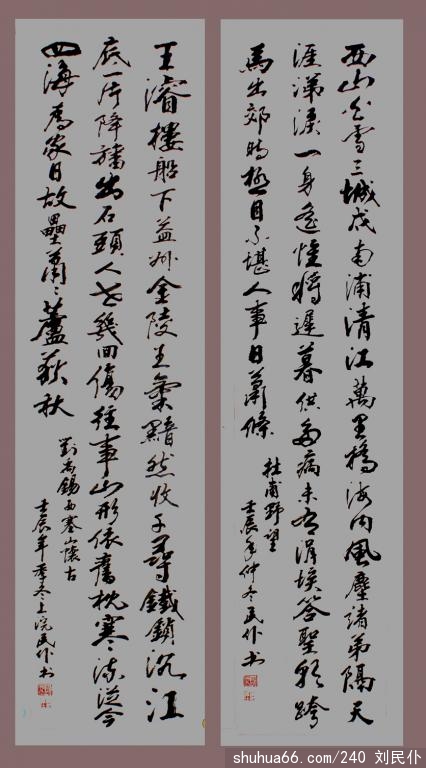 西山白雪三城戍南浦清江萬里橋海内風塵諸弟隔天
涯涕淚一身遙惟將遲暮供多病未有涓埃答聖朝跨
馬出郊時極目不堪人事日蕭條
杜甫野望
壬辰年仲冬民仆书
王濬樓船下益州金陵王氣黯然收千尋鐵鎖沉江
底一片降旛出石頭人世幾回傷往事山形依舊枕寒流從今
四海為家日故壘蕭〻蘆荻秋
劉禹錫西塞山懷古
壬辰年季冬上浣民仆书
shuhua66.com/240 刘民仆